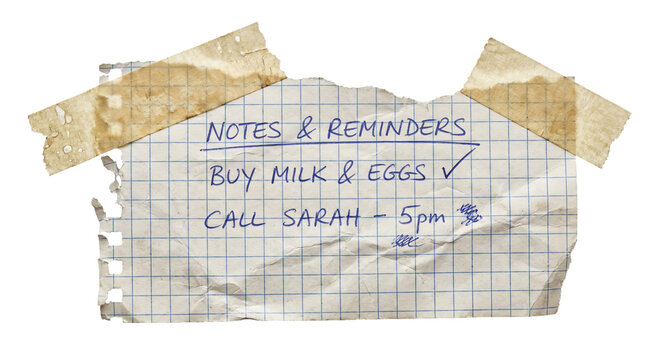 NOTES & REMINDERS
BUY MILK & EGGS ✓
CALL SARAH - 5pm